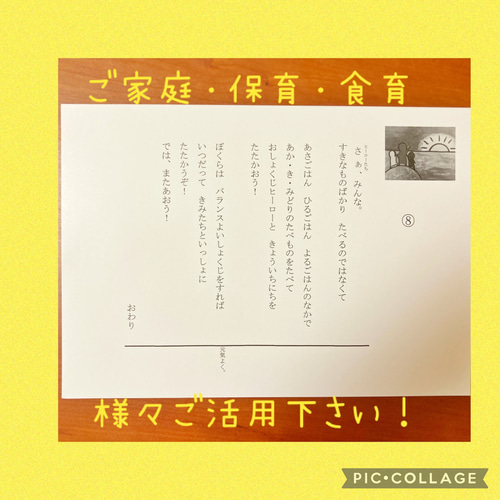 ご家庭・保育・食育
⑧
さぁ、みんな。
すきなものばかり　たべるのではなくて
あさごはん　ひるごはん　よるごはんのなかで
あか・き・みどりのたべものをたべて
おしょくじヒーローと　きょういちにちを
たたかおう！
ぼくらは　バランスよいしょくじをすれば
いつだって　きみたちといっしょに
たたかうぞ！
では、またあおう！
おわり
元気よく。
様々ご活用下さい！
PIC•COLLAGE